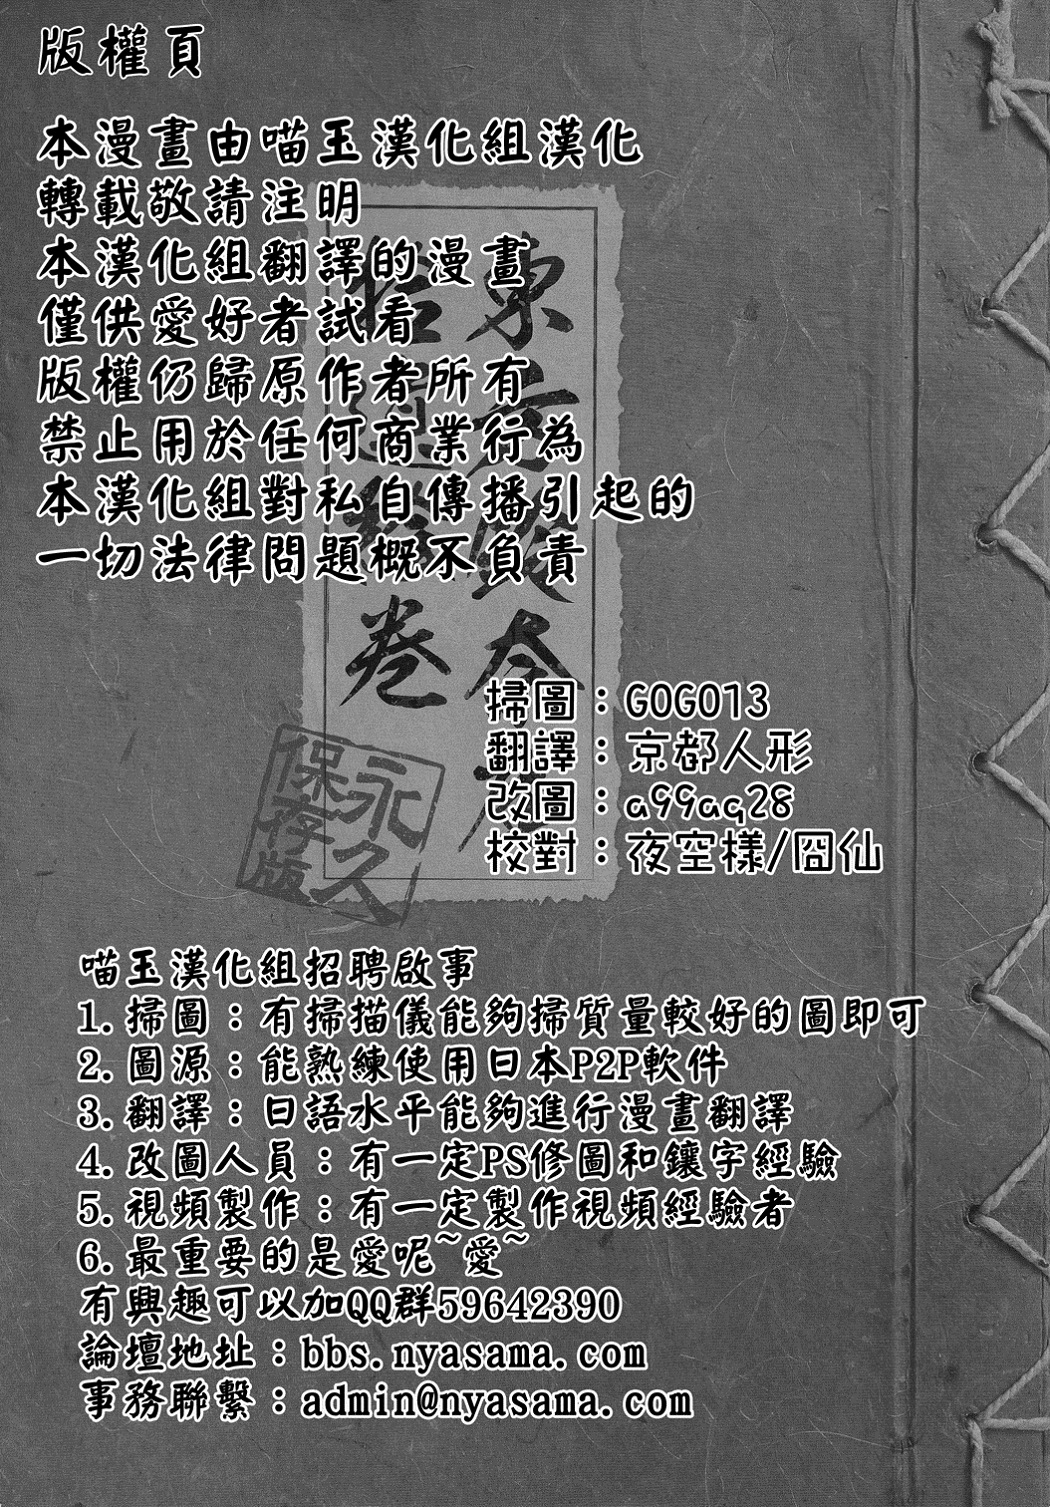 版權頁
本漫畫由喵玉漢化組漢化
轉載敬請注明
本漢化組翻譯的漫畫
僅供愛好者試看
版權仍歸原作者所有
禁止用於任何商業行為
本漢化組對私自傳播引起的
一切法律問題概不負責
掃圖：GOGO13
翻譯：京都人形
改圖：a99aq28
校對：夜空樣/囧仙
永久
保存版
喵玉漢化組招聘啟事
1.掃圖：有掃描儀能夠掃質量較好的圖即可
2.圖源：能熟練使用日本P2P軟件
3.翻譯：日語水平能夠進行漫畫翻譯
4.改圖人員：有一定PS修圖和鑲字經驗
5.視頻製作：有一定製作視頻經驗者
6.最重要的是愛呢~愛~
有興趣可以加QQ群59642390
論壇地址：bbs.nyasama.com
事務聯繫：admin@nyasama.com